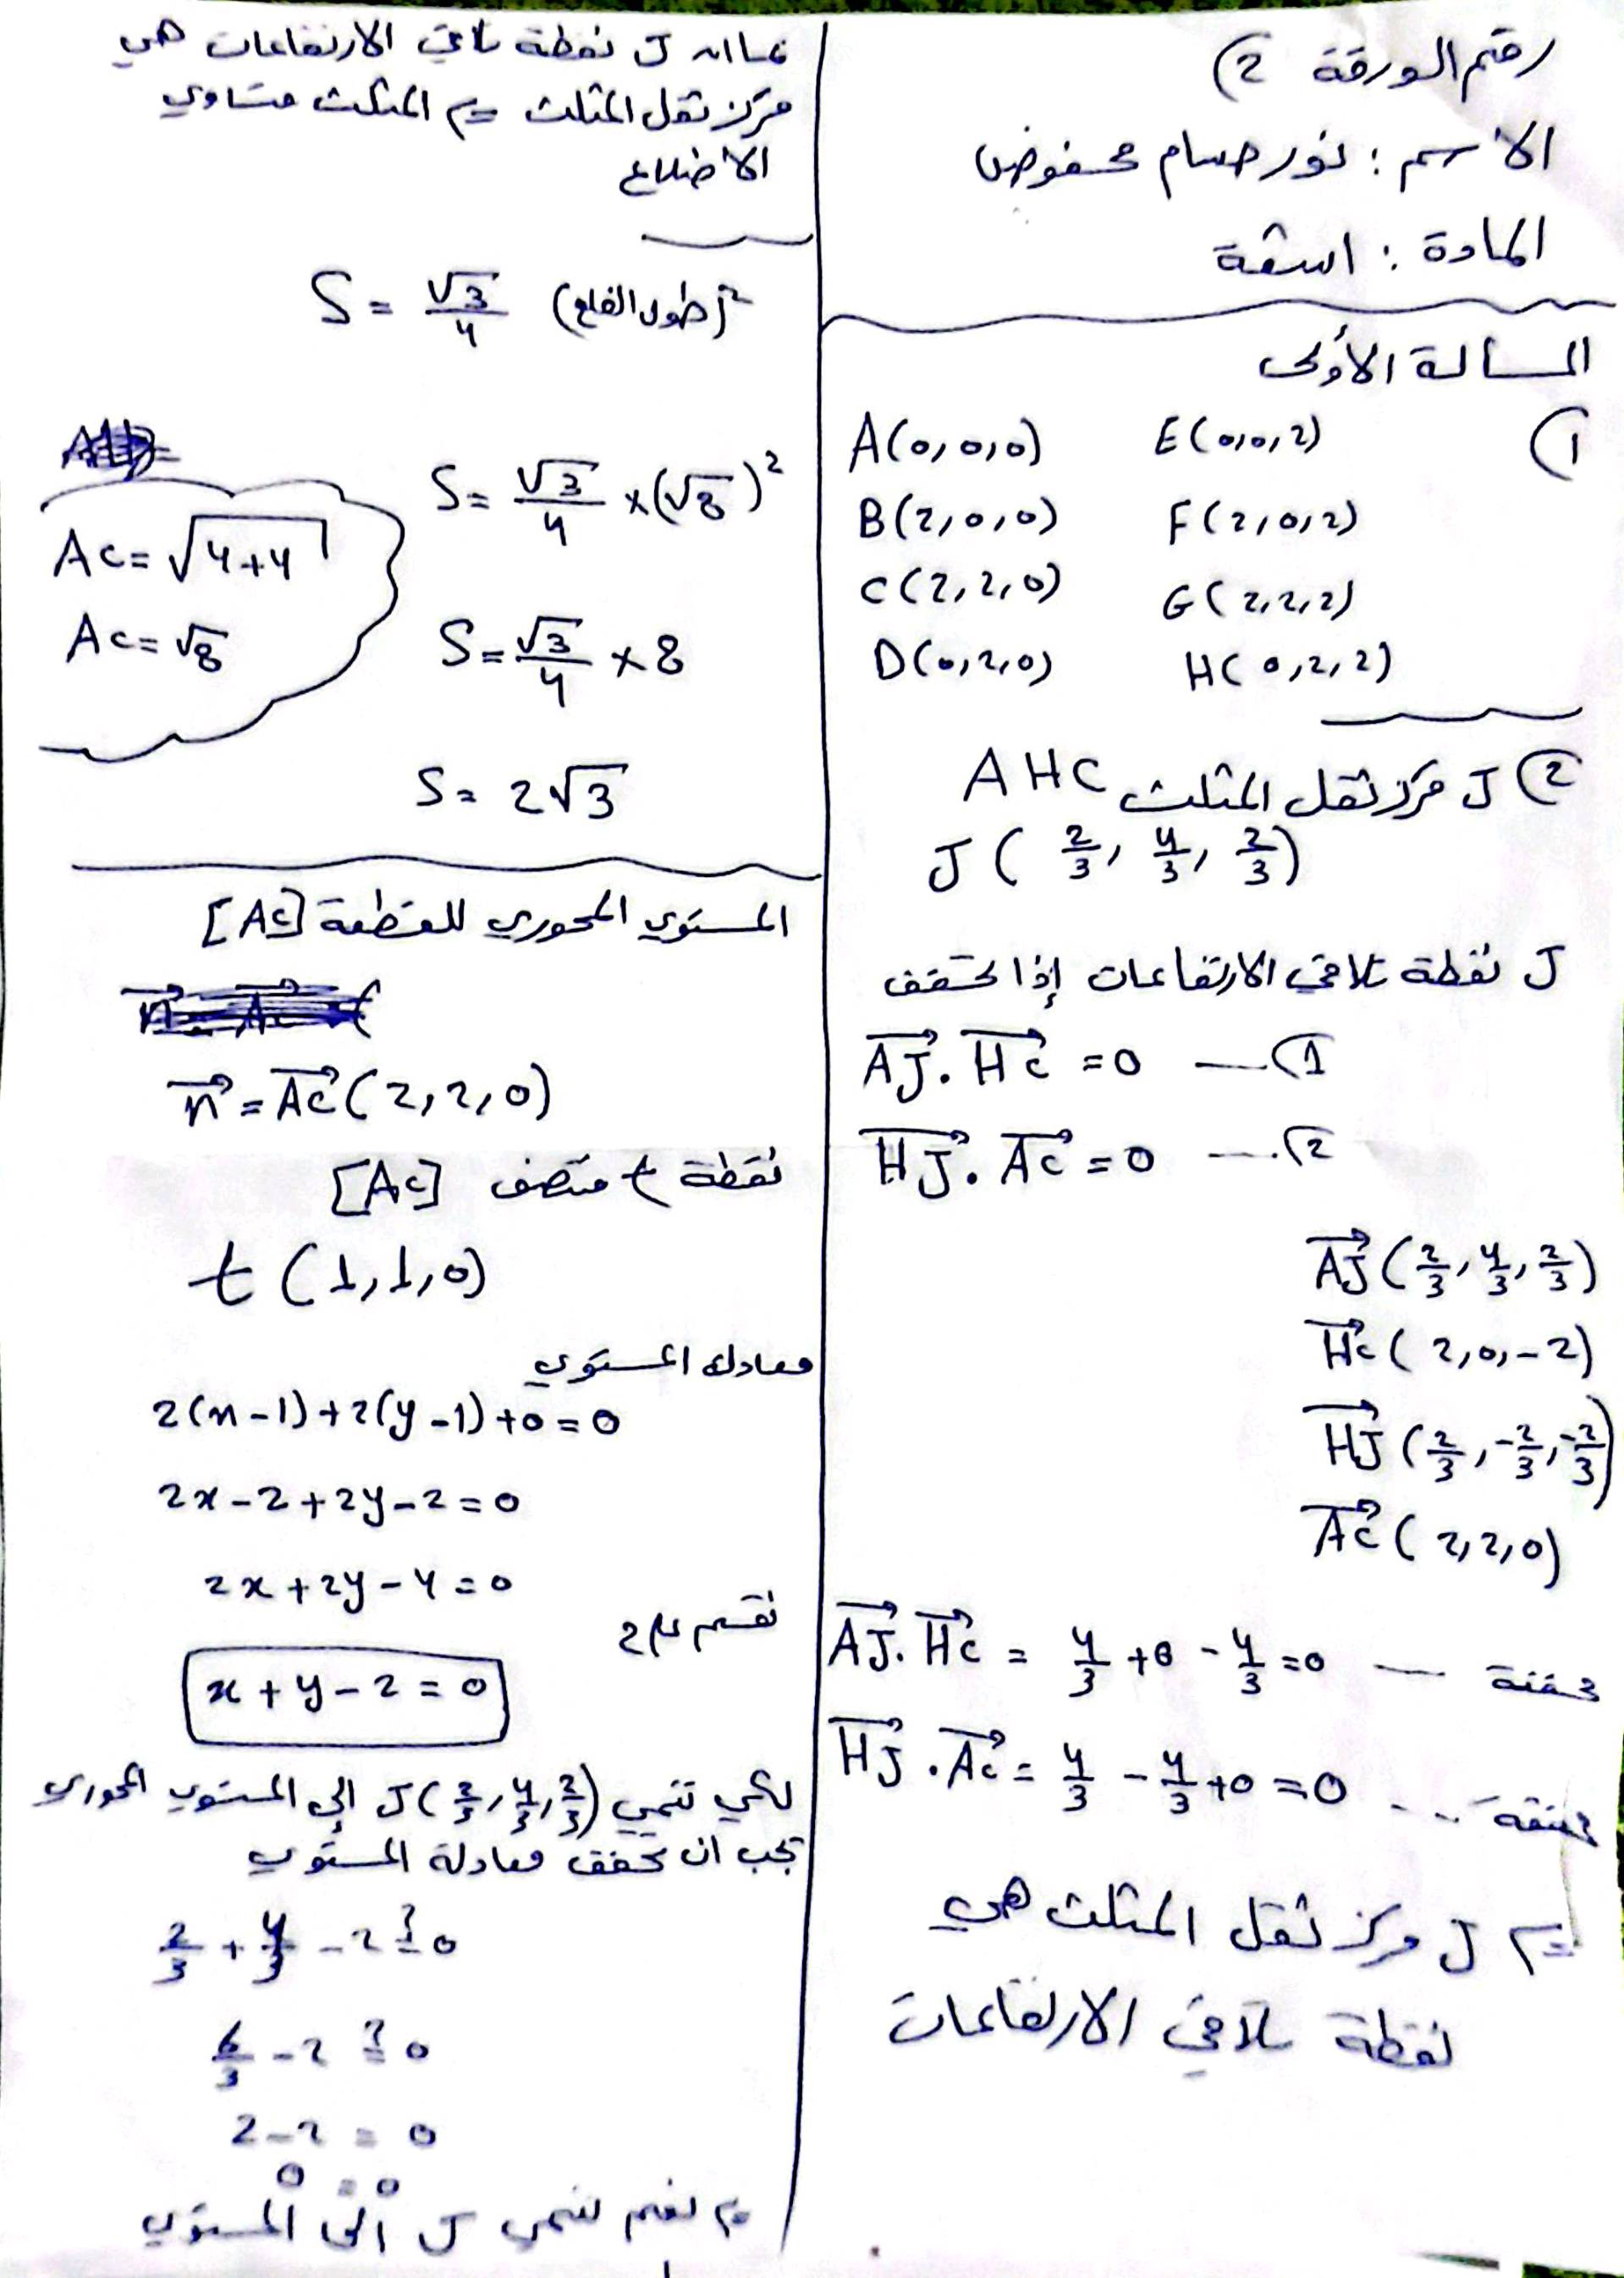 رقم الورقة 2)
الاسم : نور حسام محفوض
المادة : اسقة
المسالة الأولى
1)
A(0,0,0) E(0,0,2)
B(2,0,0) F(2,0,2)
C(2,2,0) G(2,2,2)
D(0,2,0) H(0,2,2)
2) J مركز ثقل المثلث AHC
J(2/3, 4/3, 2/3)
J نقطة تلاقي الارتفاعات إذا تحقق
AJ→ . HC→ = 0 — 1)
HJ→ . AC→ = 0 — 2)
AJ→(2/3, 4/3, 2/3)
HC→(2,0,-2)
HJ→(2/3, -2/3, -2/3)
AC→(2,2,0)
AJ→ . HC→ = 4/3 + 0 - 4/3 = 0 — محققة
HJ→ . AC→ = 4/3 - 4/3 + 0 = 0 ... محققة
⇐ J مركز ثقل المثلث هي
نقطة تلاقي الارتفاعات
بما ان J نقطة تلاقي الارتفاعات هي
مركز ثقل المثلث ⇐ المثلث متساوي
الاضلاع
S = √3/4 (طول الضلع)²
S = √3/4 × (√8)²
AC = √4+4
AC = √8
S = √3/4 × 8
S = 2√3
المستوي المحوري للقطعة [AC]
n→ = AC→(2,2,0)
نقطة t منتصف [AC]
t(1,1,0)
معادلة المستوي
2(x-1)+2(y-1)+0=0
2x-2+2y-2=0
2x+2y-4=0
نقسم على 2
x+y-2=0
لكي تنتمي J(2/3, 4/3, 2/3) إلى المستوي المحوري
يجب ان تحقق معادلة المستوي
2/3 + 4/3 - 2 ?= 0
6/3 - 2 ?= 0
2-2 = 0
0 = 0
⇐ نعم تنتمي J الى المستوي